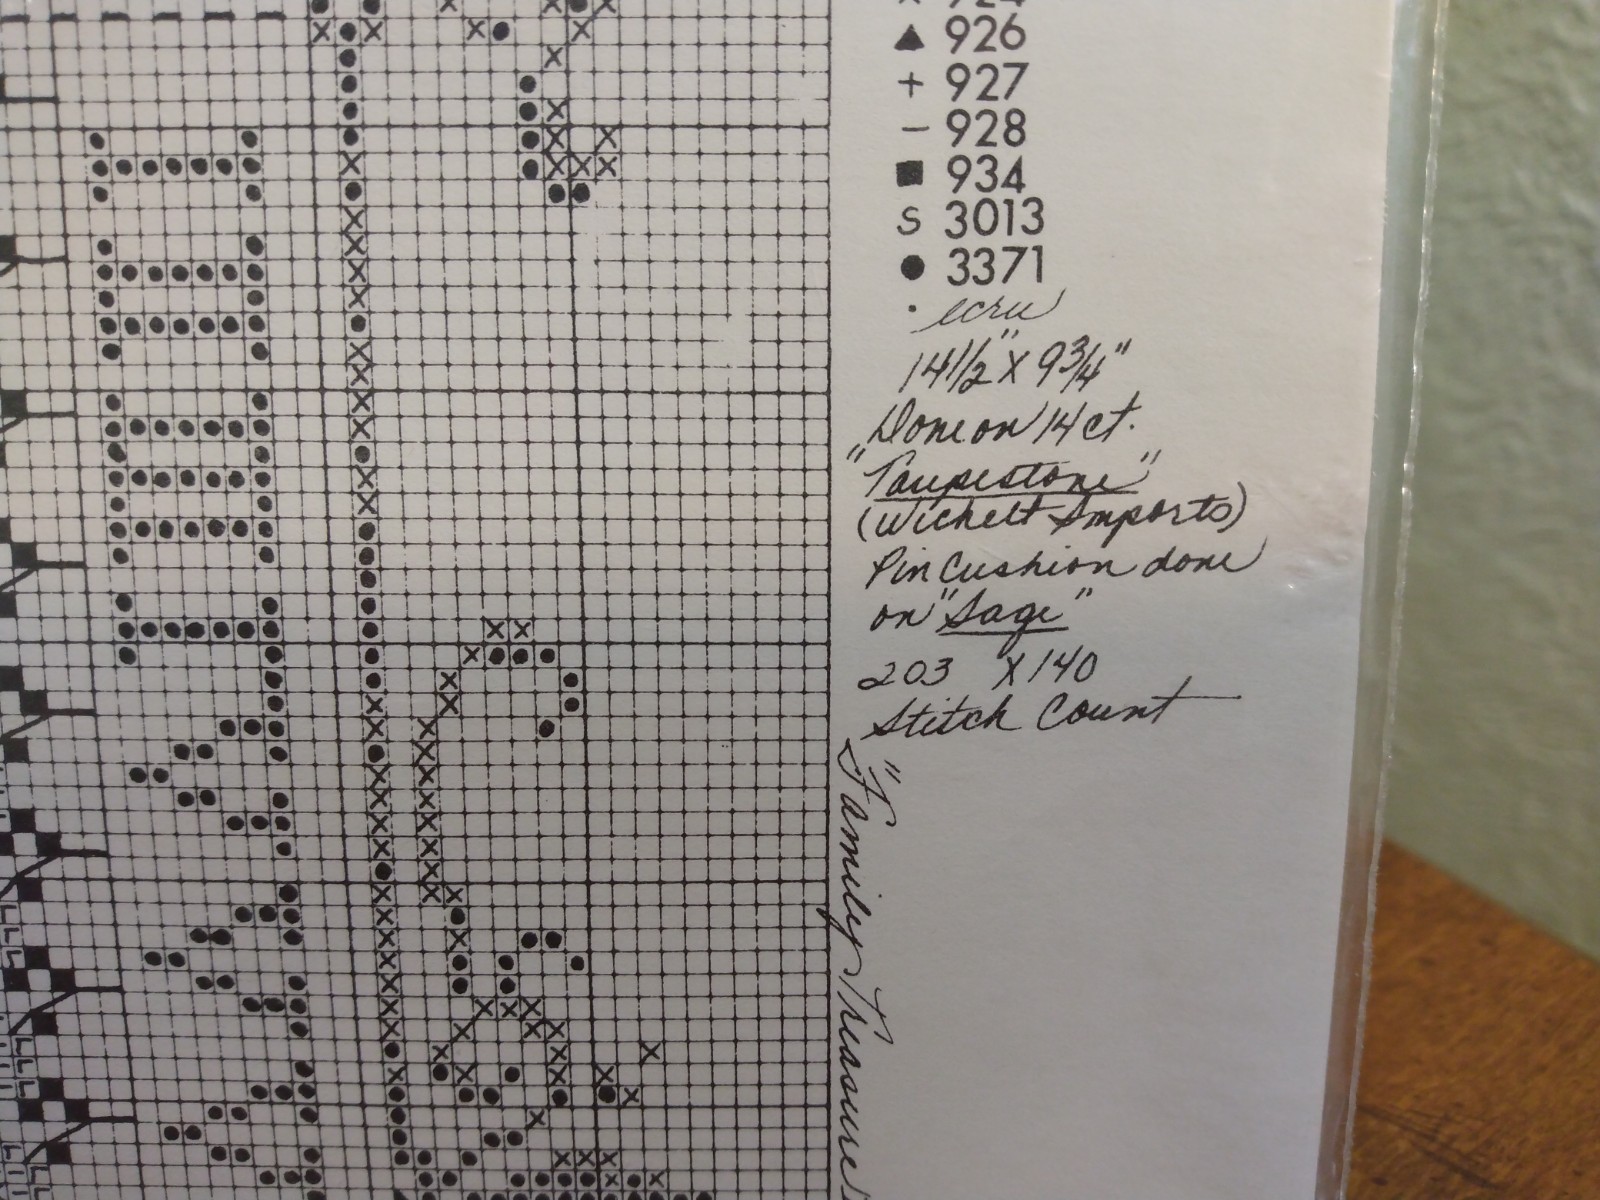 x 924
▲ 926
+ 927
– 928
■ 934
S 3013
● 3371
· ecru
14 1/2" X 9 3/4"
Done on 14 ct.
"Taupestone"
(Wichelt Imports)
Pin Cushion done
on "Sage"
203 X 140
Stitch Count
"Family Treasure"